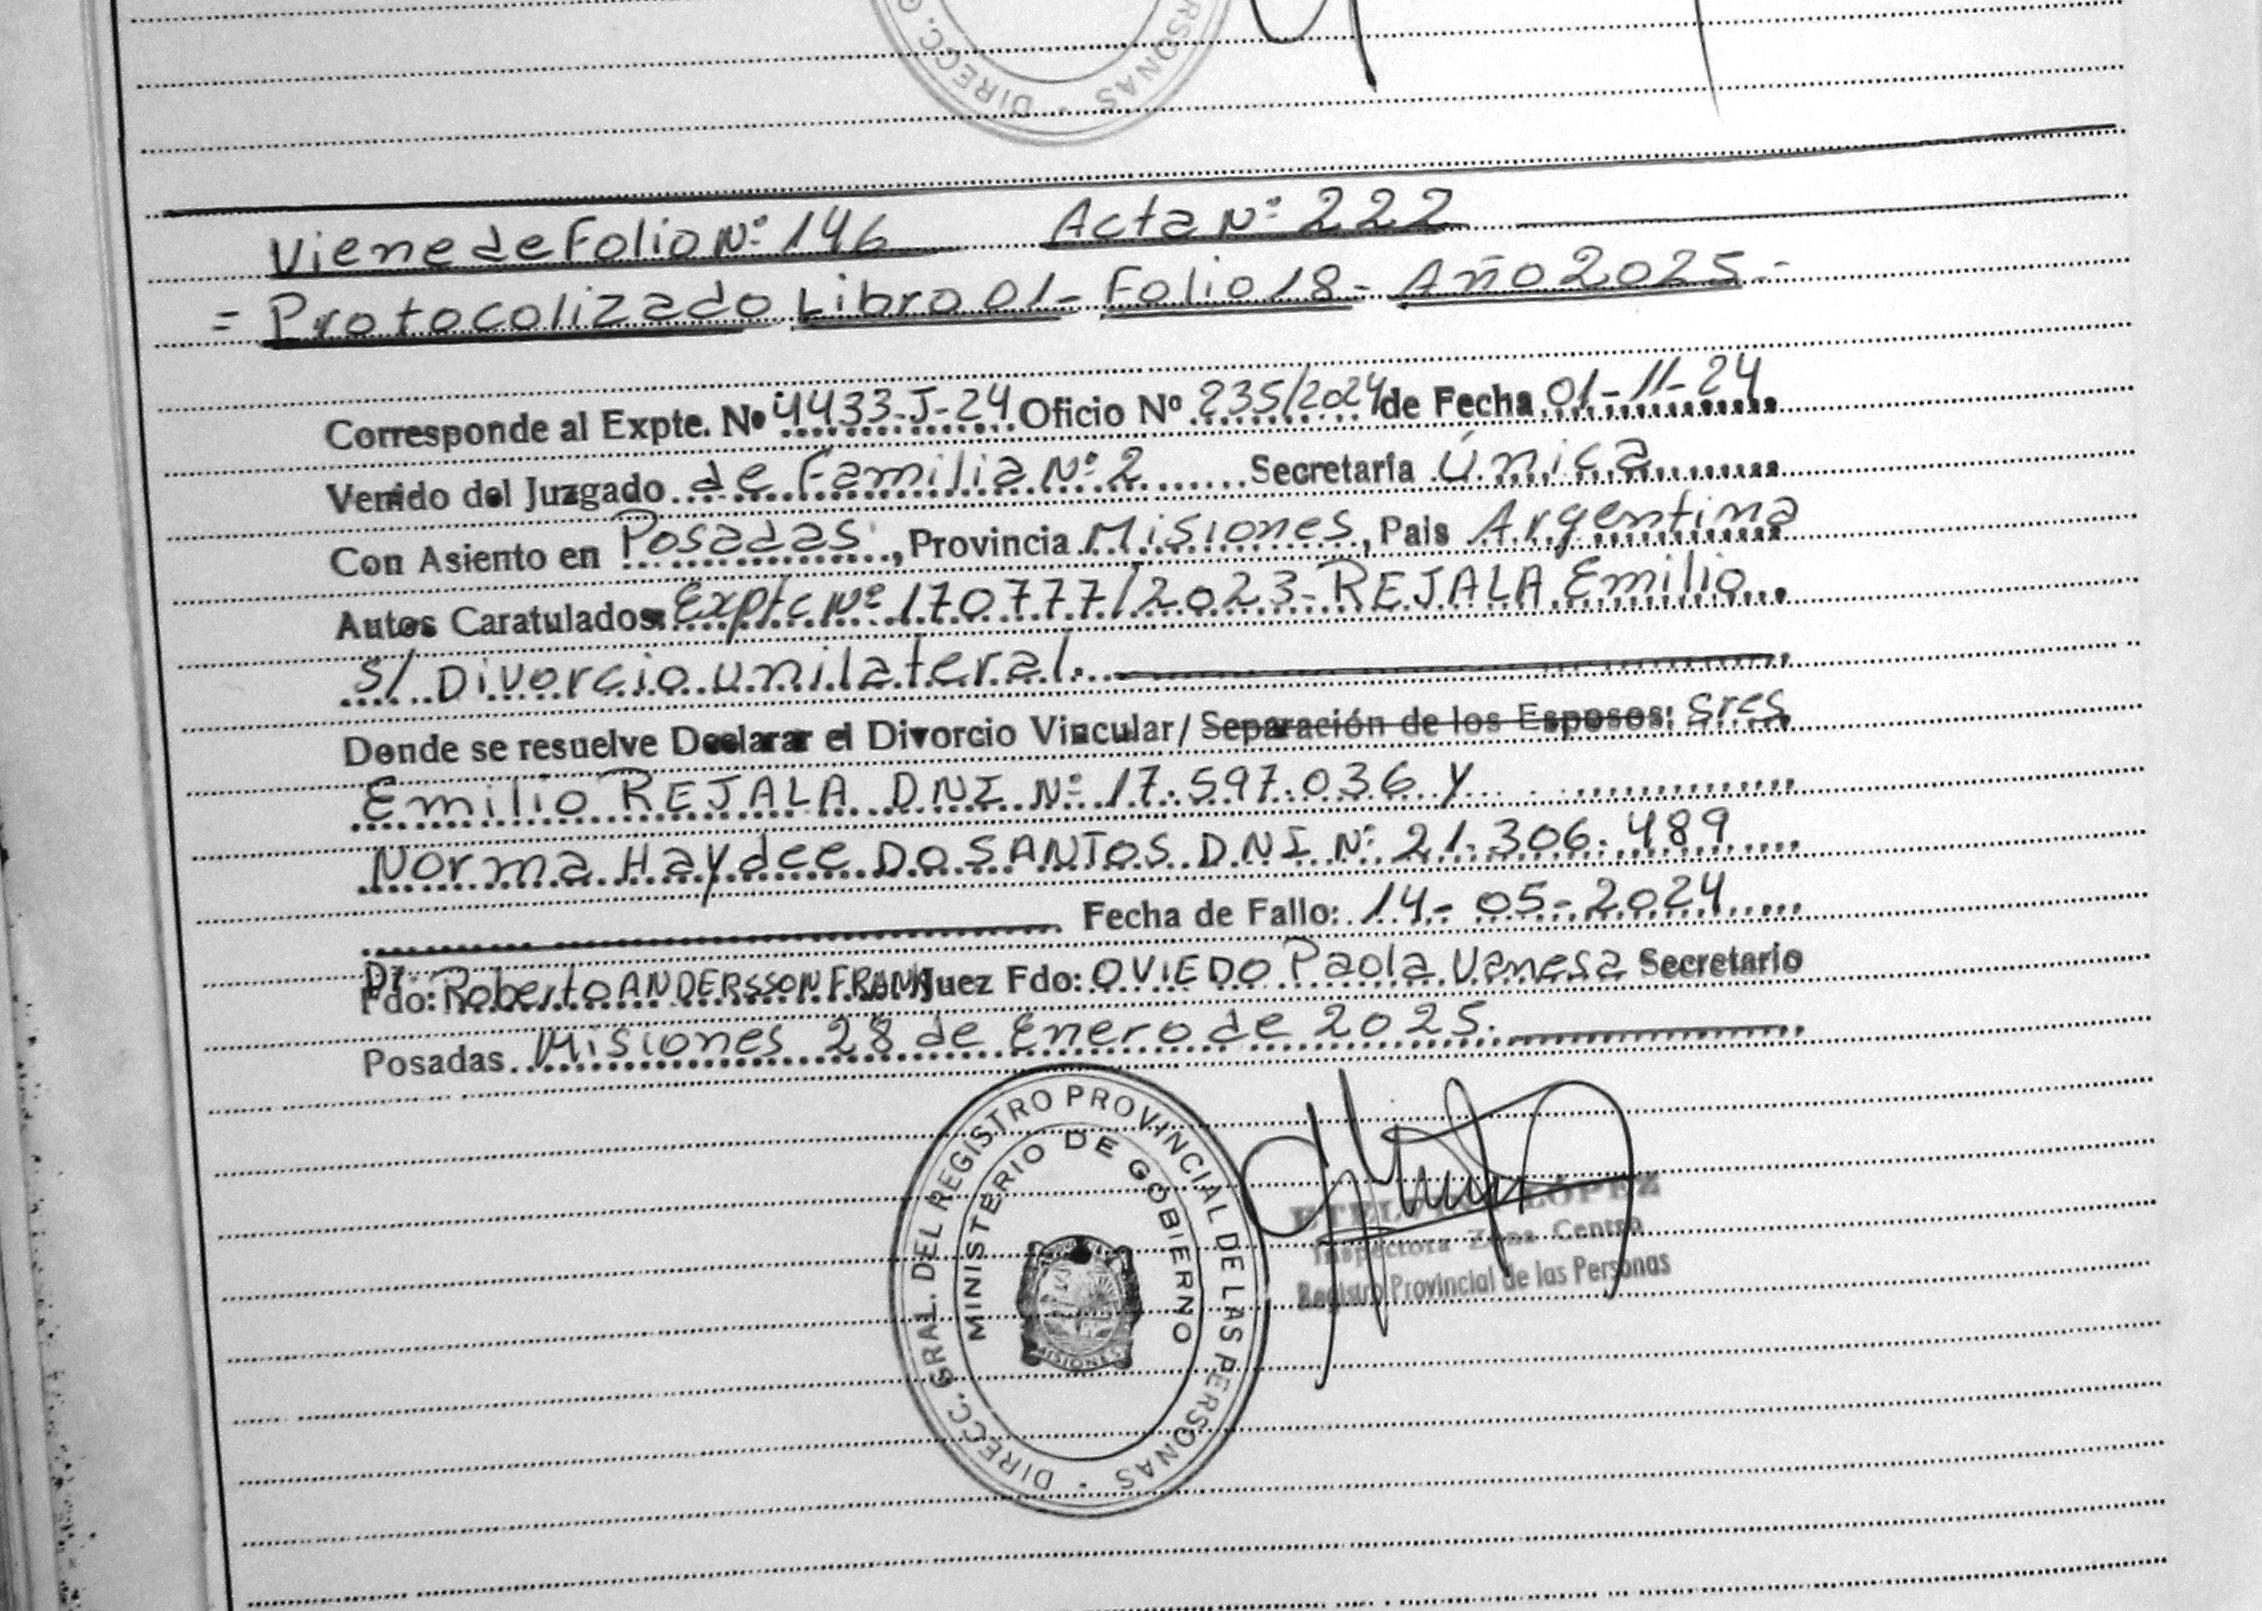 DIRECC. G
RSONAS
Viene de Folio Nº 146 Acta Nº 222
= Protocolizado Libro 01 - Folio 18 - Año 2025 -
Corresponde al Expte. Nº 4433-J-24 Oficio Nº 235/2024 de Fecha 01-11-24
Venido del Juzgado de Familia Nº 2 Secretaría Única
Con Asiento en Posadas, Provincia Misiones, País Argentina
Autos Caratulados: Expte Nº 170777/2023 - REJALA Emilio
s/ Divorcio unilateral.
Donde se resuelve Declarar el Divorcio Vincular / Separación de los Esposos: Sres
Emilio REJALA DNI Nº 17.597.036 y
Norma Haydee DO SANTOS DNI Nº 21.306.489
Fecha de Fallo: 14-05-2024
Fdo: Dr. Roberto ANDERSSON FRANK Juez Fdo: OVIEDO Paola Vanesa Secretario
Posadas Misiones 28 de Enero de 2025.
DIRECC. GRAL. DEL REGISTRO PROVINCIAL DE LAS PERSONAS
MINISTERIO DE GOBIERNO
MISIONES
LOPEZ
Inspectora Zona Centro
Registro Provincial de las Personas